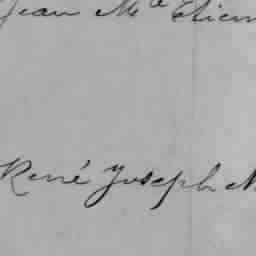 Jean Mie Etien
René Joseph M